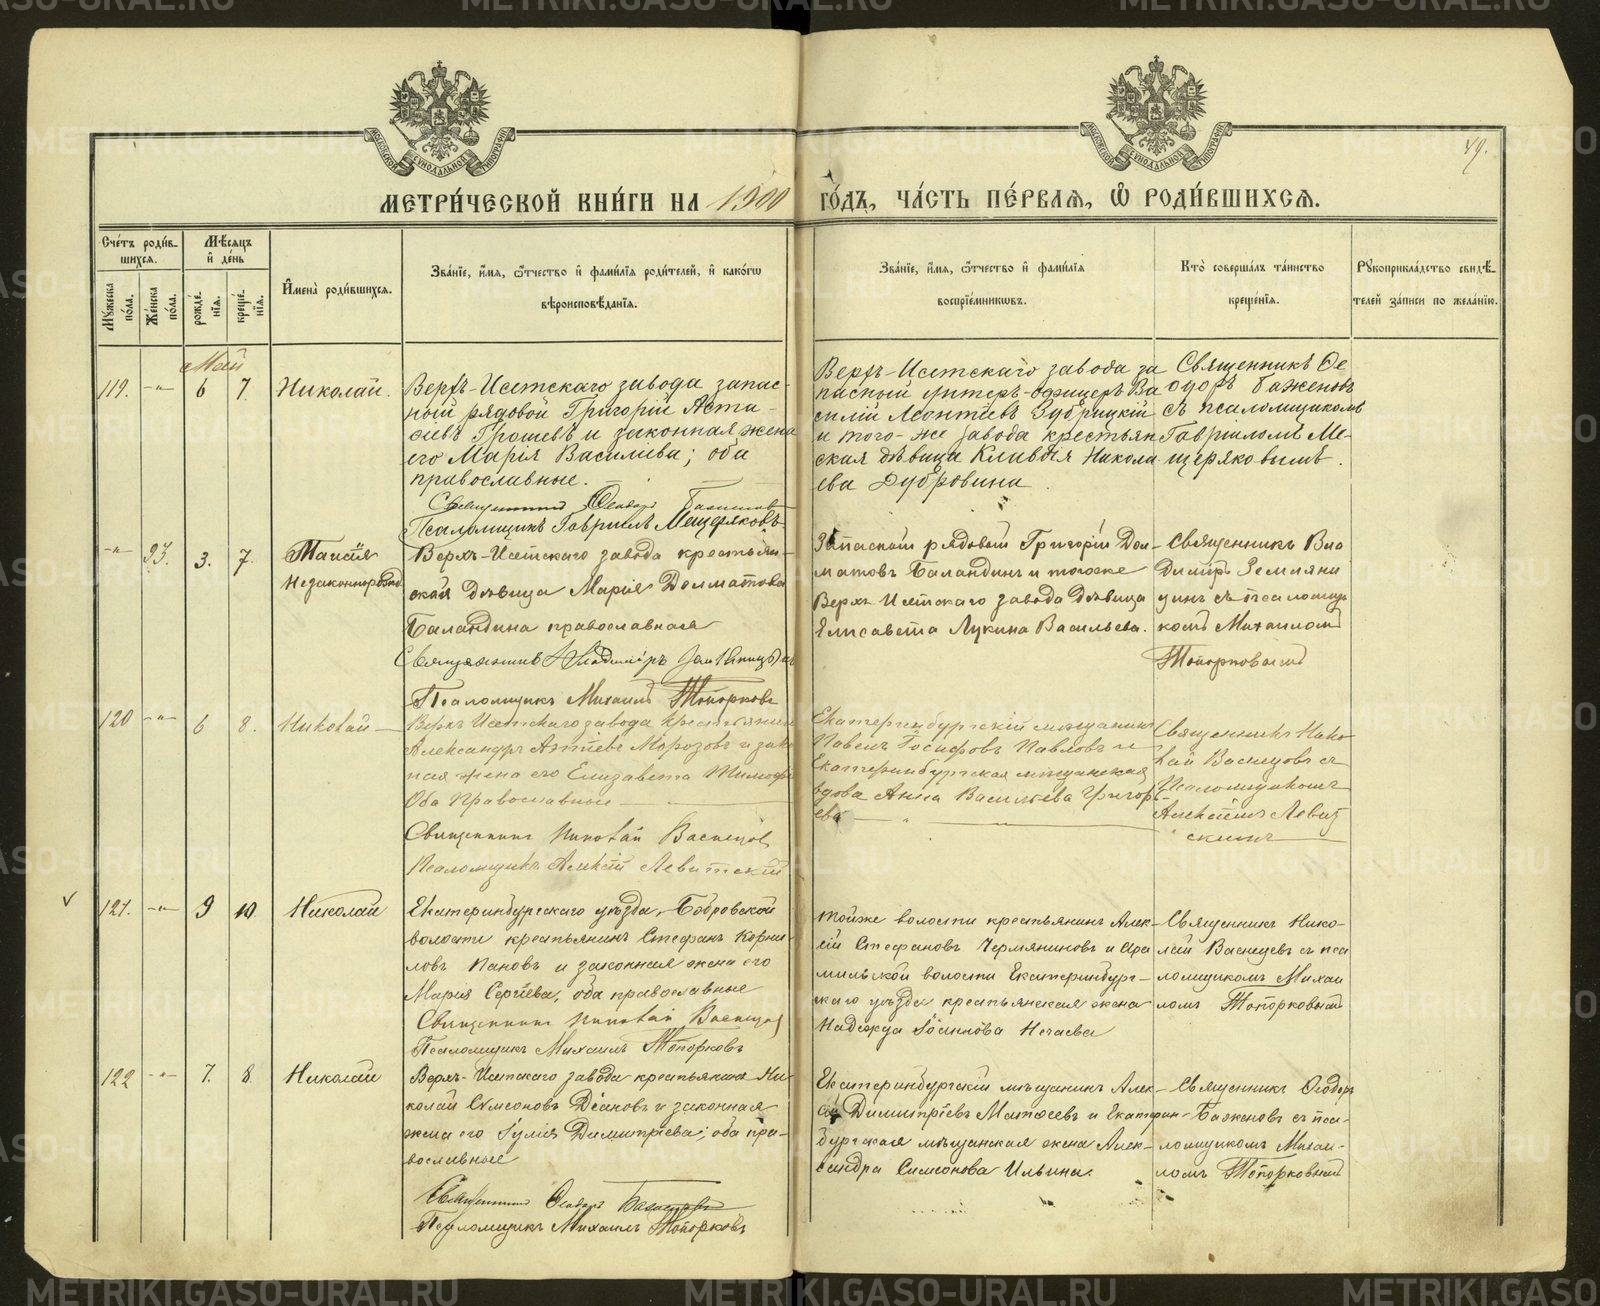 МЕТРИ́ЧЕСКОЙ КНИ́ГИ НА 1900 ГО́ДЪ, ЧА́СТЬ ПЕ́РВАЯ, Ѡ РОДИ́ВШИХСЯ.
49.
Сче́тъ роди́вшихся.
Мꙋ́жеска по́ла.
Же́нска по́ла.
Мѣ́сяцъ и де́нь
рожде́нїя.
креще́нїя.
И̓мена̀ роди́вшихся.
Зва́нїе, и́мя, ѻ́тчество и фами́лїя роди́телей, и како́гѡ
вѣроисповѣ́данїя.
Зва́нїе, и́мя, ѻ́тчество и фами́лїя
воспрїе́мниковъ.
Кто̀ соверша́лъ та́инство
креще́нїя.
Рꙋкоприкла́дство свидѣ́телей за́писи по жела́нїю.
Май
119. -"- 6 7. Николай.
Верхъ-Исетскаго завода запас-
ный рядовой Григорій Аста-
фіевъ Грошевъ и законная жена
его Марія Василіева; оба
православные.
Священникъ Ѳеодоръ Баженовъ
Псаломщикъ Гавріилъ Мещеряковъ
Верхъ-Исетскаго завода за
пасный унтеръ-офицеръ Ва
силій Леонтіевъ Зубрицкій
и того-же завода крестьян
ская дѣвица Клавдія Никола
ева Дубровина
Священникъ Ѳе
одоръ Баженовъ
съ псаломщикомъ
Гавріиломъ Ме-
щеряковымъ.
-"- 93. 3. 7. Таисія
Незаконнорожд
Верхъ-Исетскаго завода крестьян-
ская дѣвица Марія Долматова
Баландина православная
Священникъ Владиміръ Земляницынъ
Псаломщикъ Михаилъ Топорковъ
Запасный рядовый Григорій Дол-
матовъ Баландинъ и тогоже
Верхъ-Исетскаго завода дѣвица
Елисавета Лукина Васильева.
Священникъ Вла
диміръ Земляни
цынъ съ псаломщи
комъ Михаиломъ
Топорковымъ
120 -"- 6 8. Николай
Верхъ Исетскаго завода крестьянинъ
Александръ Азтіевъ Морозовъ и зако
ная жена его Елизавета Тимофе
Оба Православные
Священникъ Николай Васнецовъ
Псаломщикъ Алексій Левитскій
Екатеринбургскій мѣщанинъ
Павелъ Іосифовъ Павловъ и
Екатеринбургская мѣщанская
вдова Анна Васильева Григорь
ева
Священникъ Нико
лай Васнецовъ съ
Псаломщикомъ
Алексіемъ Левит
скимъ
121. -"- 9 10. Николай
Екатеринбургскаго уѣзда, Бобровской
волости крестьянинъ Стефанъ Корни-
ловъ Пановъ и законная жена его
Марія Сергіева, оба православные
Священникъ Николай Васнецовъ
Псаломщикъ Михаилъ Топорковъ
Тойже волости крестьянинъ Алек-
сій Стефановъ Чермяниновъ и Ара
мильской волости Екатеринбург-
скаго уѣзда крестьянская жена
Надежда Іоаннова Нечаева
Священникъ Нико-
лай Васнецовъ съ пса
ломщикомъ Михаи
ломъ Топорковымъ
122 -"- 7. 8. Николай
Верхъ-Исетскаго завода крестьянинъ Ни-
колай Сѵмеоновъ Діановъ и законная
жена его Іулія Димитріева; оба пра-
вославные
Священникъ Ѳеодоръ Баженовъ
Псаломщикъ Михаилъ Топорковъ
Екатеринбургскій мѣщанинъ Алек-
сій Димитріевъ Матѳеевъ и Екатерин-
бургская мѣщанская жена Алек-
сандра Симеонова Ильина.
Священникъ Ѳеодоръ
Баженовъ съ пса-
ломщикомъ Михаи-
ломъ Топорковымъ
METRIKI.GASO-URAL.RU